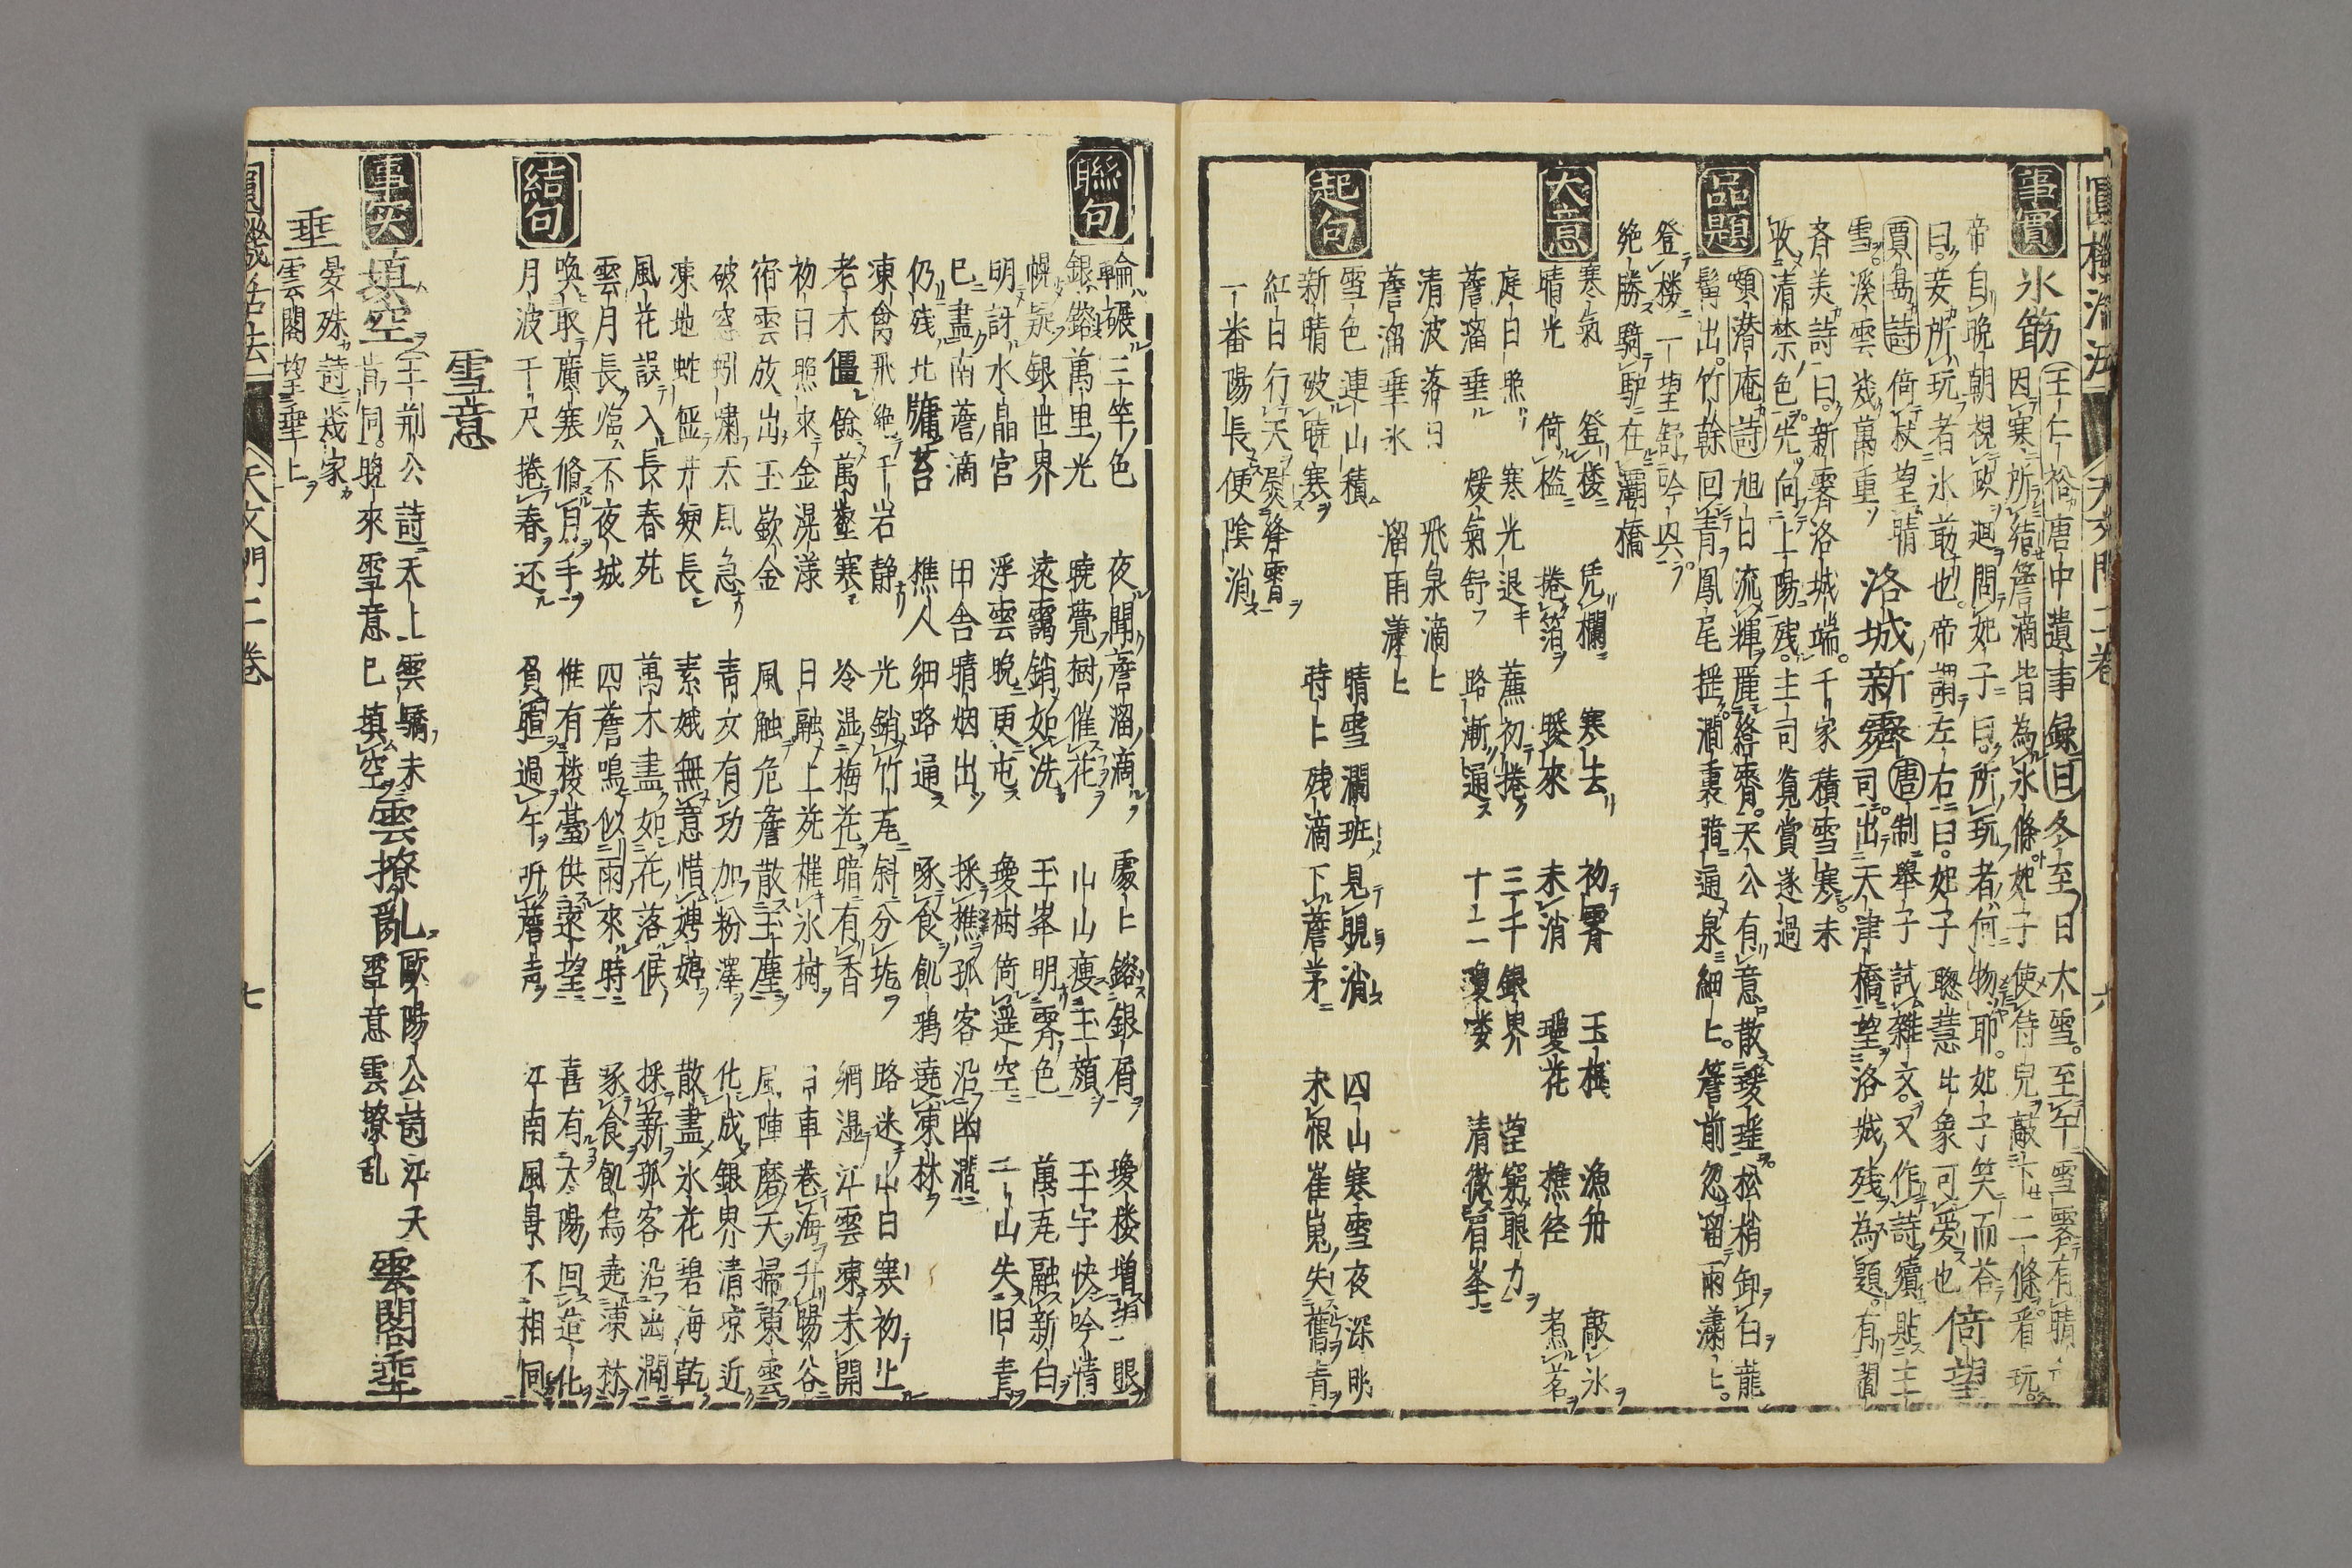 圓機活法 天文門二卷 六
事實
氷筯 王仁裕唐中遺事録曰冬至日大雪。至午雪霽有晴
因寒所結簷滴皆為氷條妃子使侍兒敲下二條看玩。
帝自晩朝視政廻問妃子曰。所玩者何物耶。妃子笑而荅
曰。妾所玩者氷筯也。帝謂左右曰。妃子聰慧此象可愛也 倚望
賈島詩 倚杖望晴
雪。溪雲幾萬重 洛城新霽 唐制舉子試雜文。又作詩續貼主
司。出天津橋望洛城残為題。有閻
斉美詩曰。新霽洛城端。千家積雪寒。未
收清禁色。先向上陽残。主司覓賞遂過
品題
顊潜庵詩 旭日流輝麗絳霄。天公有意散瓊瑶。松梢卸白龍
髯出。竹幹回青鳳尾揺。澗裏暗通泉細上。簷前忽溜雨瀟上。
登樓一望舒吟興
絶勝騎驢在灞橋
大意
寒氣 登樓 凭欄 寒去 初霽 玉槙 漁舟 敲氷
晴光 倚檻 捲箔 暖來 未消 瓊花 樵径 煮茗
庭日照 寒光退 簾初捲 三千銀界 望窮眼力
簷溜垂 煖氣舒 路漸通 十二瓊楼 清徹眉峯
清波落日 飛泉滴上
簷溜垂氷 溜雨瀟上
起句
雪色連山積 晴雪澗班見晛消 四山寒雪夜深眺
新晴破暁寒 時上残滴下簷茅 未恨崔嵬失舊青
紅日行天爕絳霄
一番陽長便陰消
聯句
輪碾三竿色 夜聞簷溜滴 處上鎔銀屑 瓊楼増眼
銀鎔萬里光 暁覺樹催花 山山瘦玉顔 玉宇快吟情
幌疑銀世界 遠靄銷如洗 玉峯明霽色 萬瓦融新白
明訝水晶宮 浮雲晩更屯 瓊樹倚遥空 二山失旧青
已盡南簷滴 田舎晴烟出 採樵孤客沿幽澗
仍残北牖苔 樵人細路通 啄食飢鴉遶凍林
凍禽飛絶千岩静 光銷竹瓦斜分垢 路迷山日寒初上
老木僵餘萬壑寒 冷湿梅花暗有香 網湿江雲凍未開
初日照來金滉漾 日融上苑樵氷樹 日車巻海升暘谷
宿雲放出玉嶔金 風触危簷散玉塵 風陣磨天掃凍雲
破窓蚓嘯天風急 青女有功加粉澤 化成銀界清凉近
凍地蛙盤井綆長 素娥無意惜娉婷 散盡氷花碧海乾
風花誤入長春苑 萬木盡如花落候 採新孤客沿幽澗
雲月長临不夜城 四簷鳴似雨來時 啄食飢烏遶凍林
結句
喚取廣寒脩月手 惟有楼臺供遠望 喜有大陽回造化
月波千尺捲春还 負暄過午听簷声 江南風景不相同
雪意
事实
填空 王荆公詩天上雲驕未
肯同。晩來雪意已填空 雲撩亂 歐陽公詩江天
雪意雲撩乱 雲閣垂
垂 晏殊詩幾家
雲閣望垂上
圓機活法 天文門二卷 七